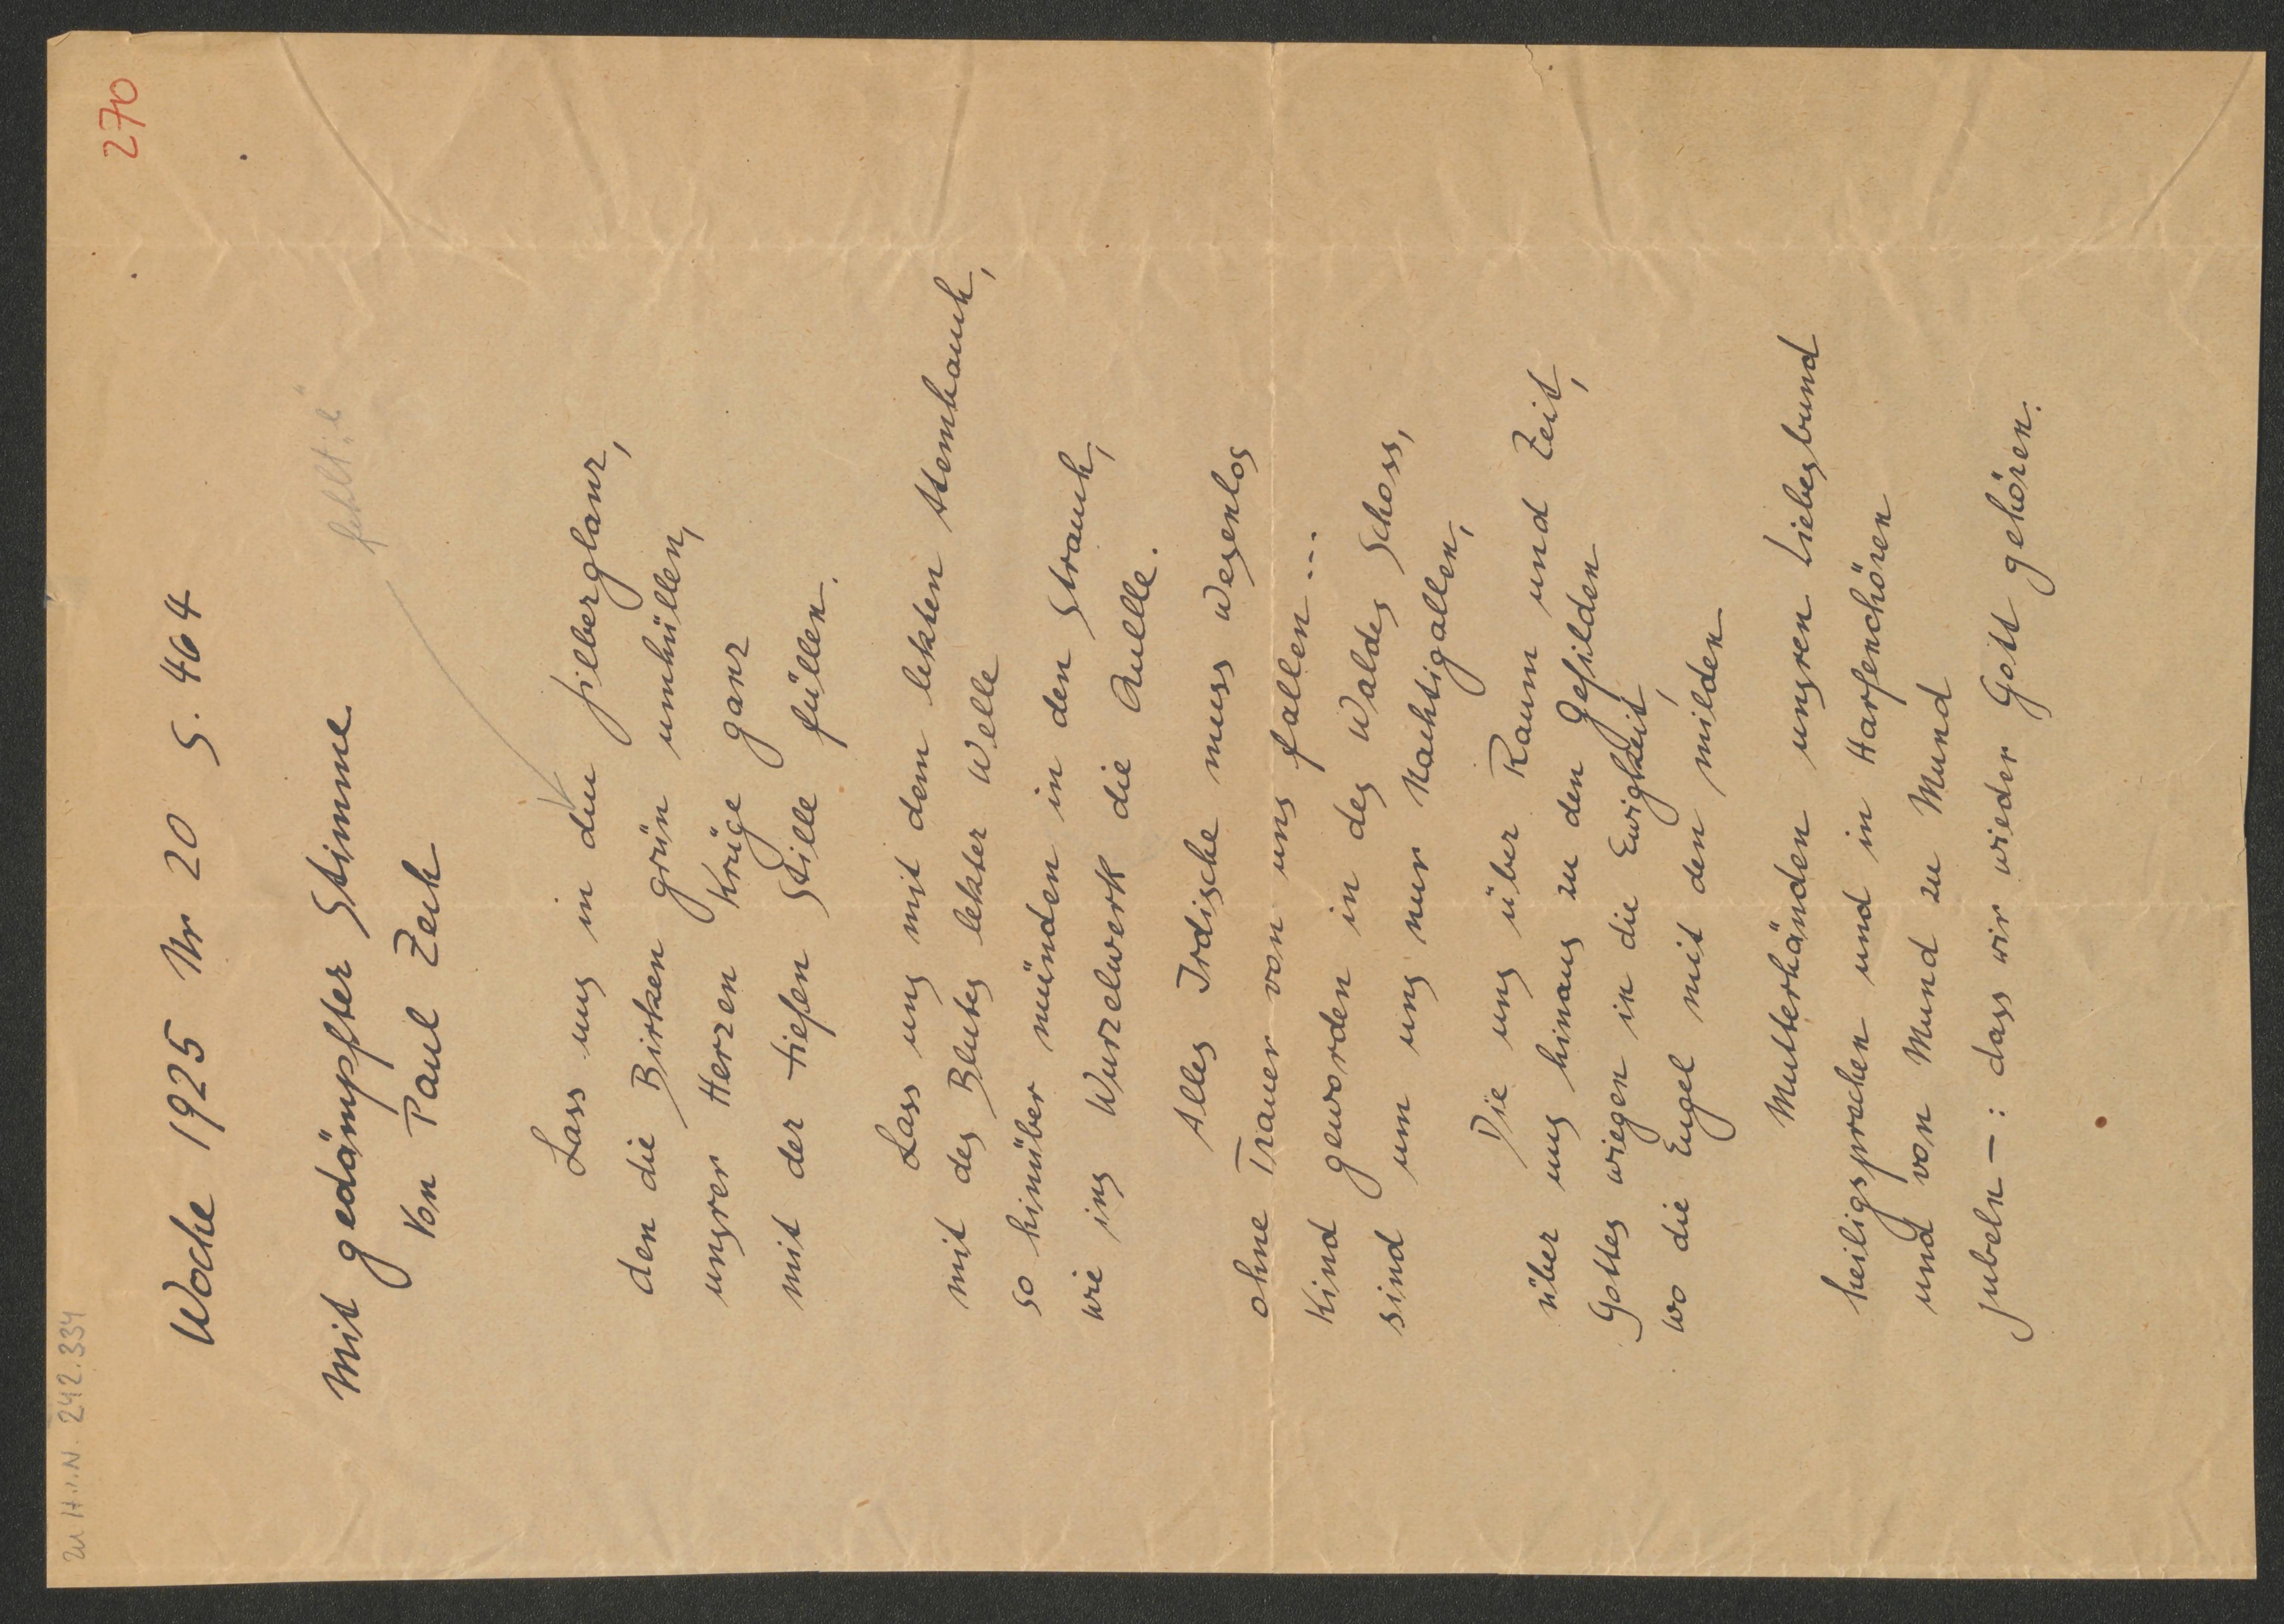 Zu H.I.N. 242.334
270
Woche 1925 Nr 20 S. 464
Mit gedämpfter Stimme
Von Paul Zech
fehlt „e“
Lass uns in den silberglanz,
den die Birken grün umhüllen,
unsrer Herzen Krüge ganz
mit der tiefen Stille füllen.
Lass uns mit dem letzten Atemhauch,
mit des Blutes letzter Welle
so hinüber münden in den Strauch,
wie ins Wurzelwerk die Quelle.
Alles Irdische muss wesenlos
ohne Trauer von uns fallen ...
Kind geworden in des Waldes Schoss,
sind um uns nur Nachtigallen,
Die uns über Raum und Zeit,
über uns hinaus zu den Gefilden
Gottes wiegen in die Ewigkeit,
wo die Engel mit den milden
Mutterhänden unsren Liebesbund
heiligsprechen und in Harfenchören
und von Mund zu Mund
jubeln –: dass wir wieder Gott gehören.